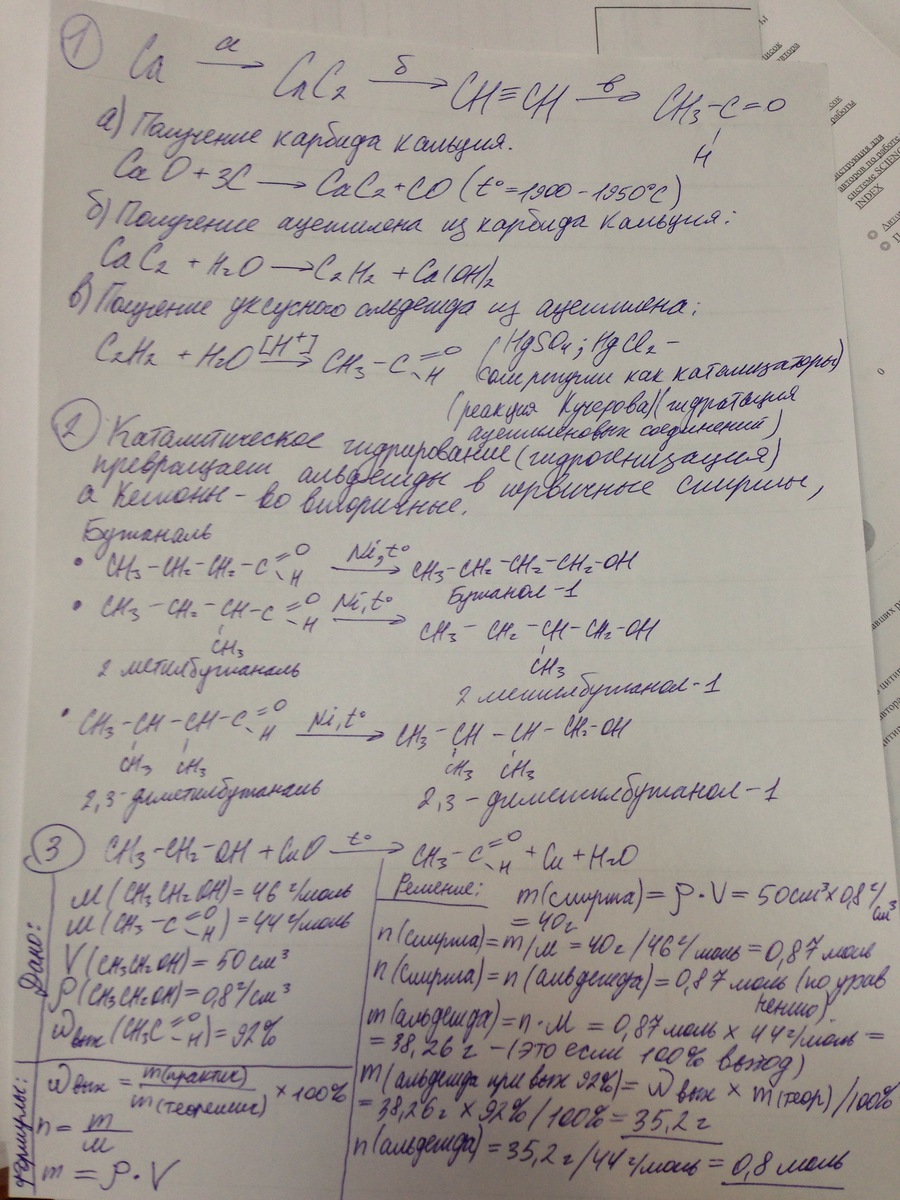 1
Ca —а→ CaC2 —б→ CH≡CH —в→ CH3-C=O
H
а) Получение карбида кальция.
CaO + 3C → CaC2 + CO (t°=1900-1950°C)
б) Получение ацетилена из карбида кальция:
CaC2 + H2O → C2H2 + Ca(OH)2
в) Получение уксусного альдегида из ацетилена:
C2H2 + H2O —[H+]→ CH3-C=O -H (HgSO4; HgCl2 -
солертуции как катализаторы)
(реакция Кучерова) (гидратация
ацетиленовых соединений)
2 Каталитическое гидрирование (гидрогенизация)
превращает альдегиды в первичные спирты,
а Кетоны - во вторичные.
Бутаналь
• CH3-CH2-CH2-C=O -H —Ni, t°→ CH3-CH2-CH2-CH2-OH
Бутанол-1
• CH3-CH2-CH-C=O -H —Ni, t°→ CH3-CH2-CH-CH2-OH
CH3 CH3
2 метилбутаналь 2 метилбутанол-1
• CH3-CH-CH-C=O -H —Ni, t°→ CH3-CH-CH-CH2-OH
CH3 CH3 CH3 CH3
2,3-диметилбутаналь 2,3-диметилбутанол-1
3 CH3-CH2-OH + CuO —t°→ CH3-C=O -H + Cu + H2O
Дано:
M(CH3CH2OH) = 46 г/моль
M(CH3-C=O -H) = 44 г/моль
V(CH3CH2OH) = 50 см³
ρ(CH3CH2OH) = 0,8 г/см³
Wвых(CH3C=O -H) = 92%
Формулы:
Wвых = m(практич)/m(теоретич) × 100%
n = m/M
m = ρ·V
Решение: m(спирта) = ρ·V = 50см³×0,8 г/см³
= 40г
n(спирта) = m/M = 40г/46г/моль = 0,87 моль
n(спирта) = n(альдегида) = 0,87 моль (по урав
нению)
m(альдегида) = n·M = 0,87 моль × 44 г/моль =
= 38,26 г - (это если 100% выход)
m(альдегида при вых 92%) = Wвых × m(теор)/100%
= 38,26г × 92%/100% = 35,2 г
n(альдегида) = 35,2 г/44 г/моль = 0,8 моль
сок
работы
нструкция для
авторов по работе
системе SCIENCE
INDEX